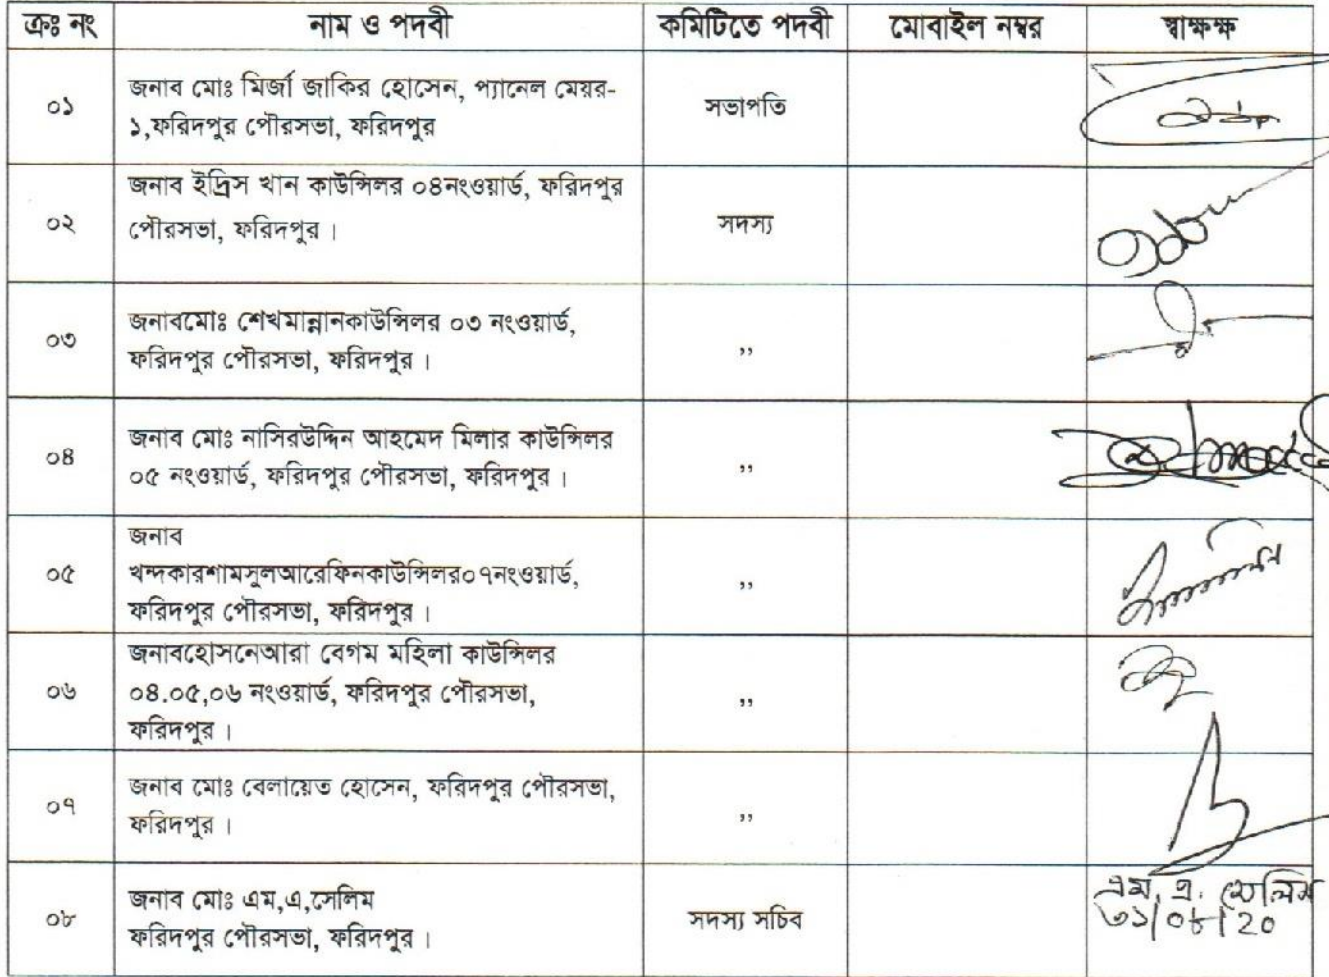 ক্রঃ নং নাম ও পদবী কমিটিতে পদবী মোবাইল নম্বর স্বাক্ষক্ষ
০১ জনাব মোঃ মির্জা জাকির হোসেন, প্যানেল মেয়র-
১,ফরিদপুর পৌরসভা, ফরিদপুর
সভাপতি
০২ জনাব ইদ্রিস খান কাউন্সিলর ০৪নংওয়ার্ড, ফরিদপুর
পৌরসভা, ফরিদপুর।
সদস্য
০৩ জনাবমোঃ শেখমান্নানকাউন্সিলর ০৩ নংওয়ার্ড,
ফরিদপুর পৌরসভা, ফরিদপুর।
,,
০৪ জনাব মোঃ নাসিরউদ্দিন আহমেদ মিলার কাউন্সিলর
০৫ নংওয়ার্ড, ফরিদপুর পৌরসভা, ফরিদপুর।
,,
০৫ জনাব
খন্দকারশামসুলআরেফিনকাউন্সিলর০৭নংওয়ার্ড,
ফরিদপুর পৌরসভা, ফরিদপুর।
,,
০৬ জনাবহোসনেআরা বেগম মহিলা কাউন্সিলর
০৪.০৫,০৬ নংওয়ার্ড, ফরিদপুর পৌরসভা,
ফরিদপুর।
,,
০৭ জনাব মোঃ বেলায়েত হোসেন, ফরিদপুর পৌরসভা,
ফরিদপুর।
,,
০৮ জনাব মোঃ এম,এ,সেলিম
ফরিদপুর পৌরসভা, ফরিদপুর।
সদস্য সচিব
এম, এ. সেলিম
৩১/০৮/20